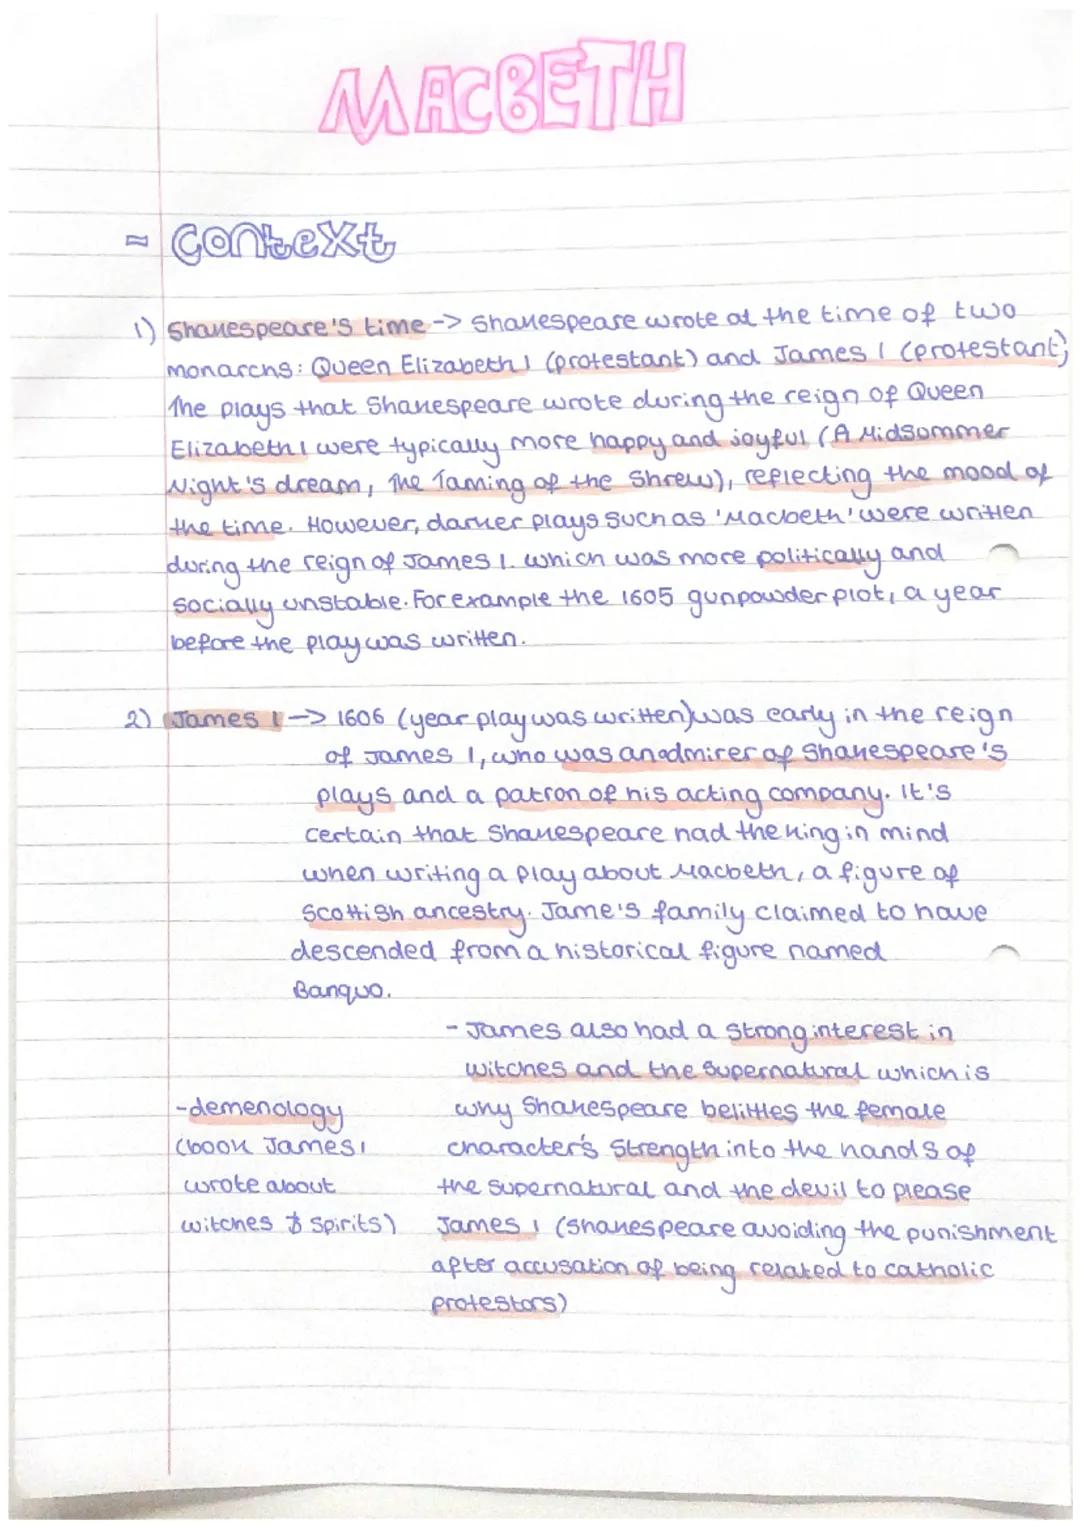 MACBETH
= Context
1) Shakespeare's time -> Shakespeare wrote at the time of two
monarchs: Queen Elizabeth I (protestant) and James I (protestant);
The plays that Shakespeare wrote during the reign of Queen
Elizabeth I were typically more happy and joyful (A Midsommer
Night's dream, The Taming of the Shrew), reflecting the mood of
the time. However, darker plays such as 'Macbeth' were written
during the reign of James I. which was more politically and
socially unstable. For example the 1605 gunpowder plot, a year
before the play was written.
2) James I -> 1606 (year play was written) was early in the reign
of James I, who was an admirer of Shakespeare's
plays and a patron of his acting company. It's
certain that Shakespeare had the king in mind
when writing a play about Macbeth, a figure of
Scottish ancestry. Jame's family claimed to have
descended from a historical figure named
Banquo.
- James also had a strong interest in
witches and the supernatural which is
why Shakespeare belittles the female
character's strength into the hands of
the supernatural and the devil to please
James I (Shakespeare avoiding the punishment
after accusation of being related to catholic
protestors)
-demenology
(book James I
wrote about
witches & spirits)